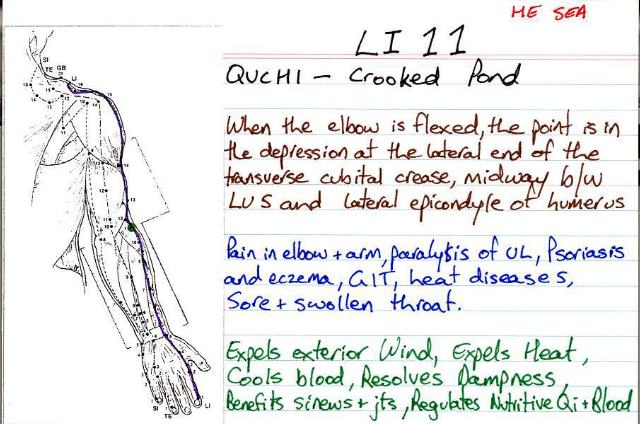 HE SEA
LI 11
QUCHI – Crooked Pond
When the elbow is flexed, the point is in
the depression at the lateral end of the
transverse cubital crease, midway b/w
LU 5 and lateral epicondyle of humerus
Pain in elbow + arm, paralysis of UL, Psoriasis
and eczema, GIT, heat diseases,
Sore + swollen throat.
Expels exterior Wind, Expels Heat,
Cools blood, Resolves Dampness,
Benefits sinews + jts, Regulates Nutritive Qi + Blood
SI
TE GB
LI
SI
TE
LI